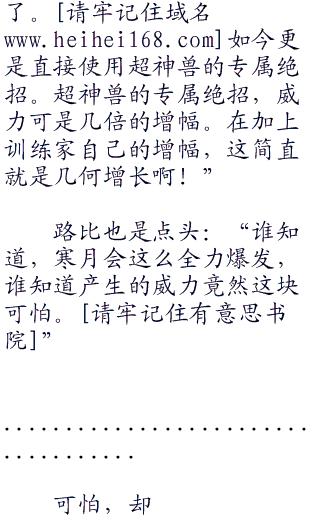 了。[请牢记住域名
www.heihei168.com]如今更
是直接使用超神兽的专属绝
招。超神兽的专属绝招，威
力可是几倍的增幅。在加上
训练家自己的增幅，这简直
就是几何增长啊！”
路比也是点头：“谁知
道，寒月会这么全力爆发，
谁知道产生的威力竟然这块
可怕。[请牢记住有意思书
院]”
.........................
...........
可怕，却